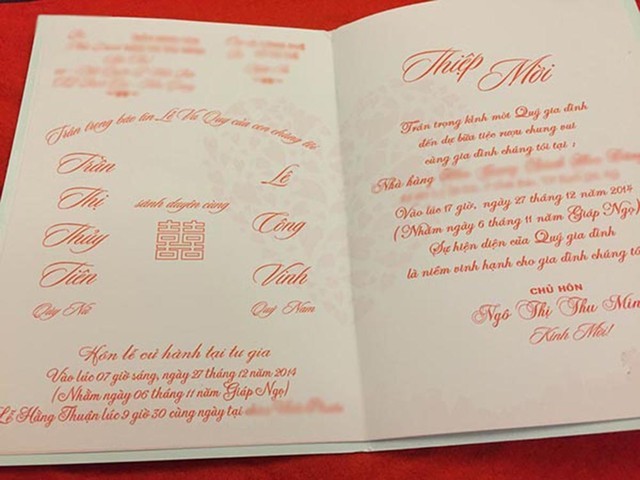 Trân trọng báo tin Lễ Vu Quy của con chúng tôi
Trần Lê
Thị
sánh duyên cùng
Thủy Công
囍
Tiên Vinh
Qúy Nữ Quý Nam
Hôn lễ cử hành tại tư gia
Vào lúc 07 giờ sáng, ngày 27 tháng 12 năm 2014
(Nhằm ngày 06 tháng 11 năm Giáp Ngọ)
Lễ Hằng Thuận lúc 9 giờ 30 cùng ngày tại
Thiệp Mời
Trân trọng kính mời Quý gia đình
đến dự bữa tiệc rượu chung vui
cùng gia đình chúng tôi tại :
Nhà hàng
Vào lúc 17 giờ, ngày 27 tháng 12 năm 2014
(Nhằm ngày 6 tháng 11 năm Giáp Ngọ)
Sự hiện diện của Quý gia đình
là niềm vinh hạnh cho gia đình chúng tôi
CHỦ HÔN
Ngô Thị Thu Min
Kính Mời!